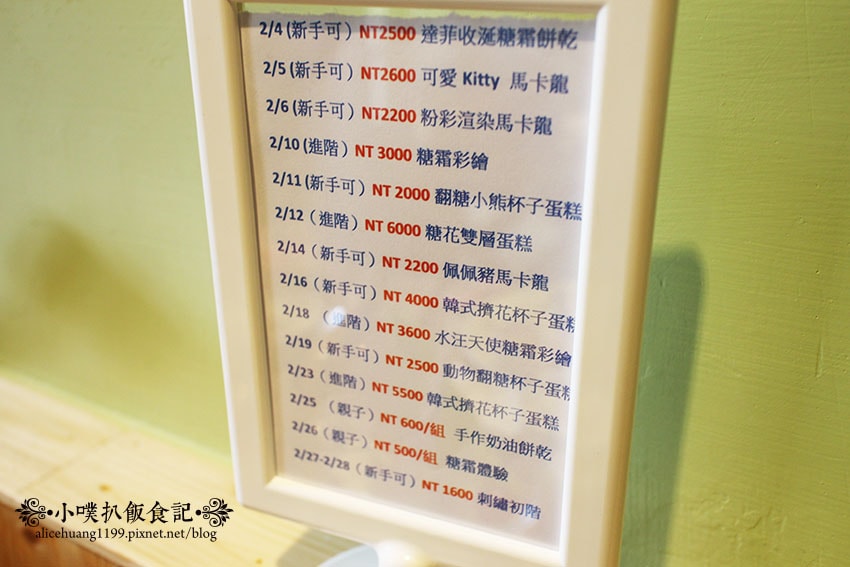 2/4 (新手可) NT2500 達菲收涎糖霜餅乾
2/5 (新手可) NT2600 可愛 Kitty 馬卡龍
2/6 (新手可) NT2200 粉彩渲染馬卡龍
2/10 (進階) NT 3000 糖霜彩繪
2/11 (新手可) NT 2000 翻糖小熊杯子蛋糕
2/12 (進階) NT 6000 糖花雙層蛋糕
2/14 (新手可) NT 2200 佩佩豬馬卡龍
2/16 (新手可) NT 4000 韓式擠花杯子蛋糕
2/18 (進階) NT 3600 水汪天使糖霜彩繪
2/19 (新手可) NT 2500 動物翻糖杯子蛋糕
2/23 (進階) NT 5500 韓式擠花杯子蛋糕
2/25 (親子) NT 600/組 手作奶油餅乾
2/26 (親子) NT 500/組 糖霜體驗
2/27-2/28 (新手可) NT 1600 刺繡初階
小噗扒飯食記
alicehuang1199.pixnet.net/blog